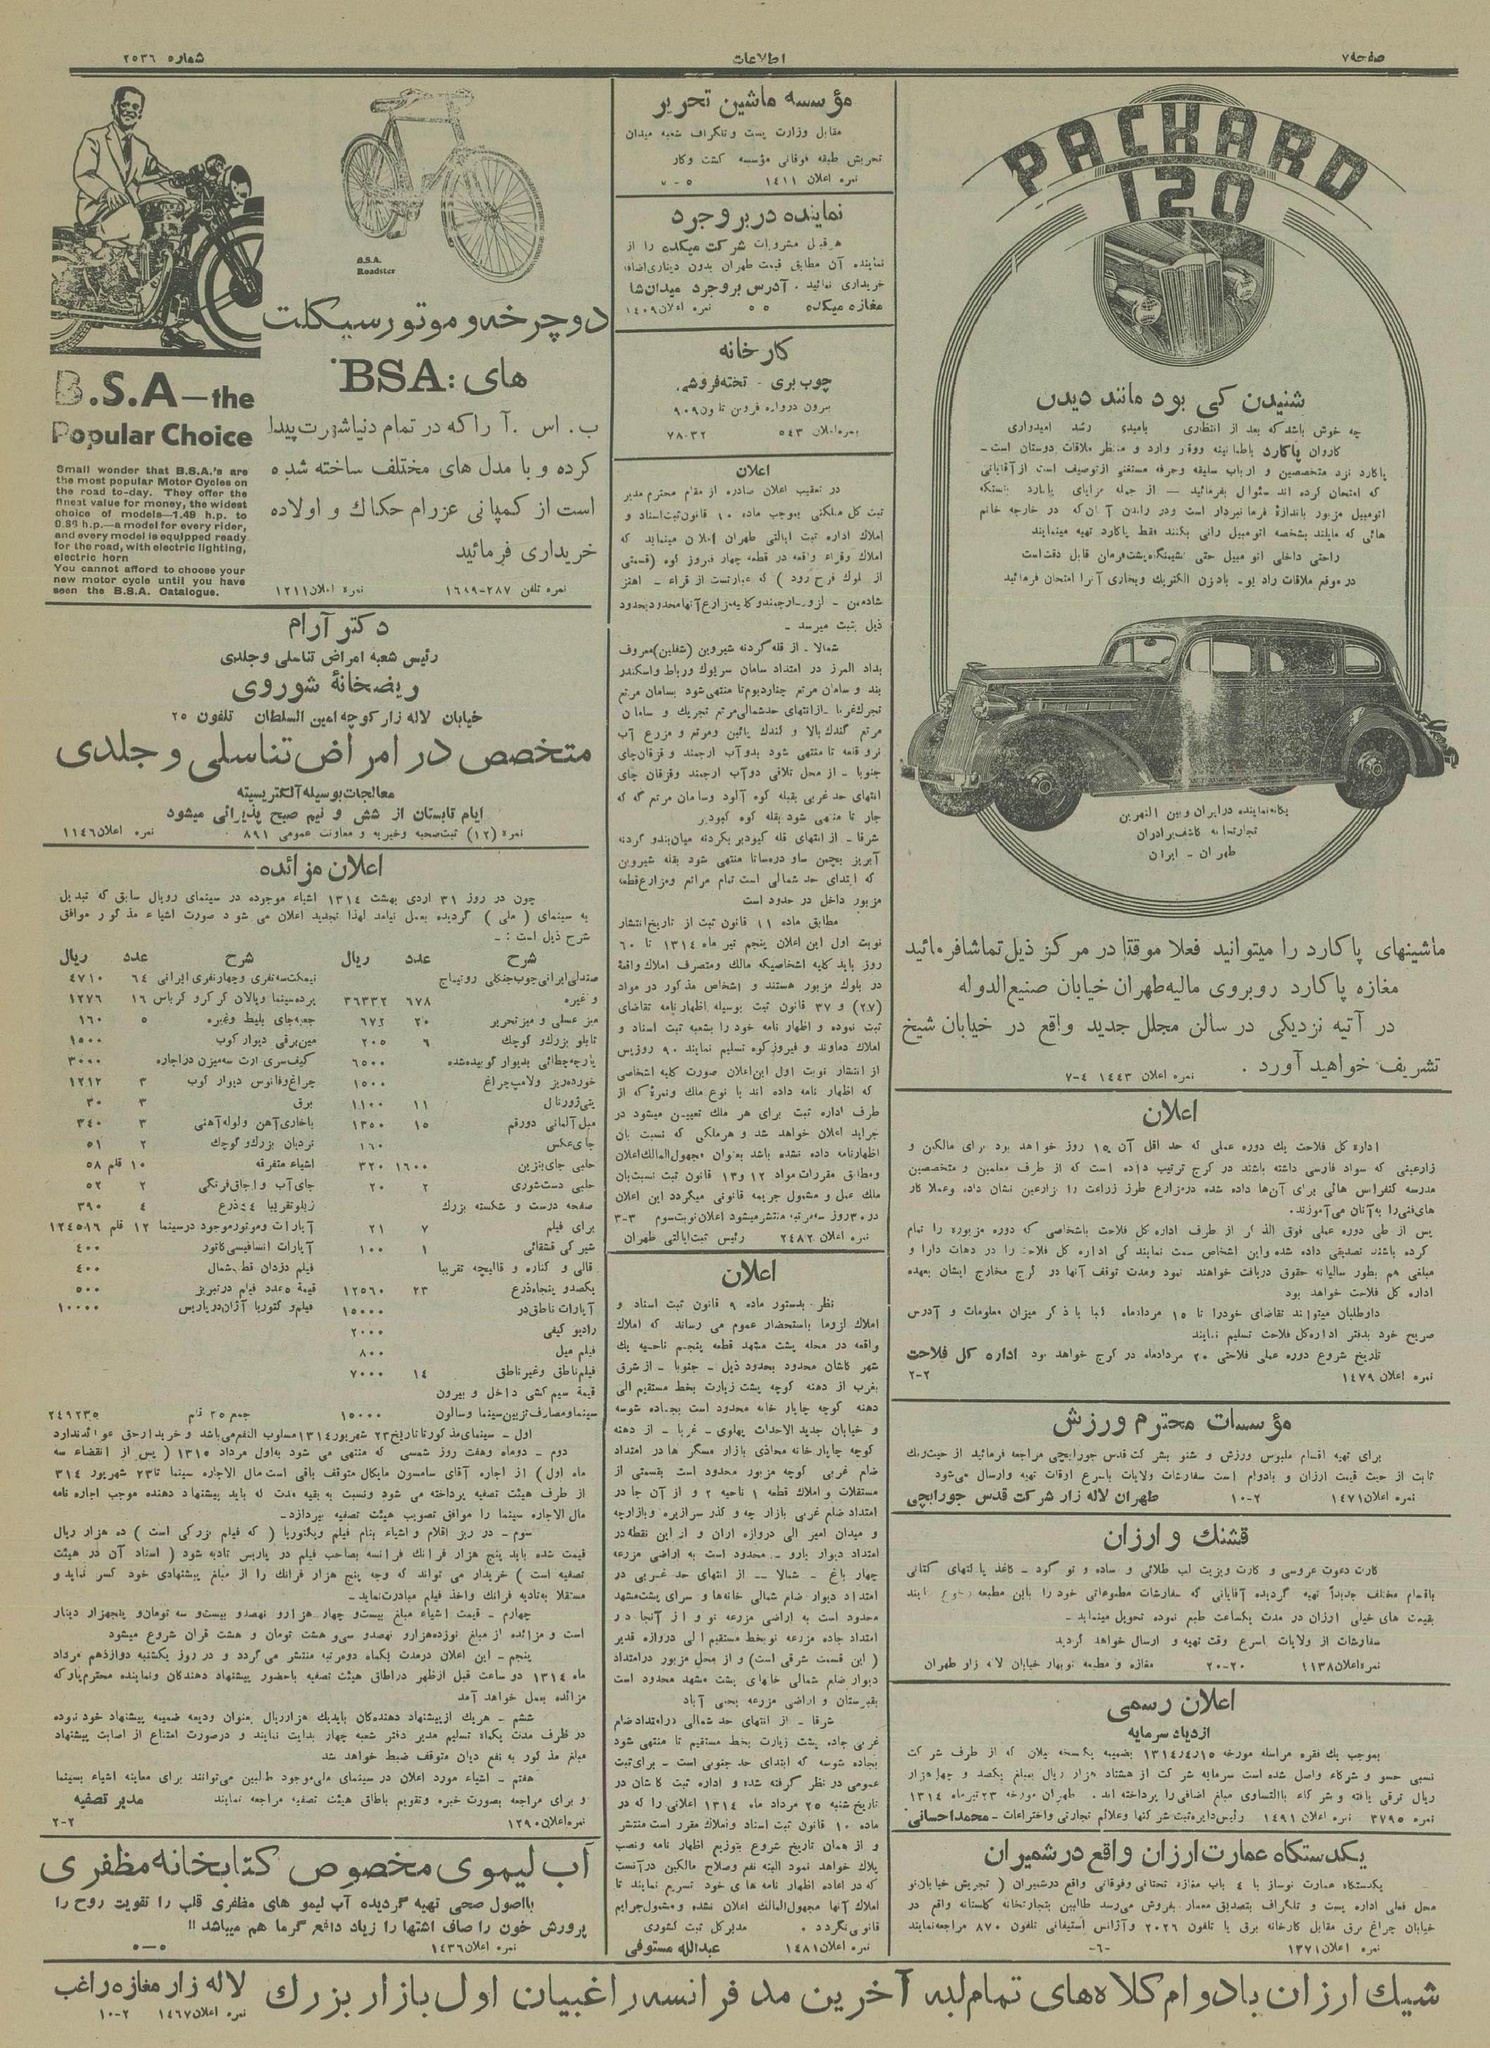 صفحه ۷
اطلاعات
شماره ۲۵۳۶
PACKARD
120
شنیدن کی بود مانند دیدن
چه خوش باشد که بعد از انتظاری بامیدی رسد امیدواری
کاروان پاکارد باطمانینه ووقار وارد و منتظر ملاقات دوستان است-
پاکارد نزد متخصصین و ارباب سلیقه وحرفه مستغنی ازتوصیف است ازآقایانی
که امتحان کرده اند سئوال بفرمائید - از جمله مزایای پاکارد
اتومبیل مزبور باندازهٔ فرمانبردار است ودر راندن آن که در خارجه خانم
هائی که مایلند بشخصه اتومبیل رانی بکنند فقط پاکارد تهیه مینمایند
راحتی داخلی اتومبیل حتی قابل دقت است
در موقع ملاقات رادیو- بادزن الکتریک وبخاری آنرا امتحان فرمائید
یگانه نماینده در ایران و بین النهرین
تجارتخانه کاشف برادران
طهران - ایران
ماشینهای پاکارد را میتوانید فعلا موقتا در مرکز ذیل تماشا فرمائید
مغازه پاکارد روبروی مالیه طهران خیابان صنیع الدوله
در آتیه نزدیکی در سالن مجلل جدید واقع در خیابان شیخ
تشریف خواهید آورد . نمره اعلان ۱۴۴۳ ۴-۷
اعلان
اداره کل فلاحت یک دوره عملی که حد اقل آن ۱۵ روز خواهد بود برای مالکین و
زارعینی که سواد فارسی داشته باشند در کرج ترتیب داده است که از طرف معلمین و متخصصین
مدرسه کنفرانس هائی برای آن‌ها داده شده درمزارع طرز زراعت را بزارعین نشان داده وعملا کار
های فنی را به آنان می‌آموزند.
پس از طی دوره عملی فوق الذکر از طرف اداره کل فلاحت باشخاصی که دوره مزبوره را تمام
کرده باشند تصدیقی داده شده واین اشخاص سمت نمایندگی اداره کل فلاحت را در دهات دارا و
مبلغی هم بطور سالیانه حقوق دریافت خواهند نمود ومدت توقف آنها در کرج مخارج ایشان بعهده
اداره کل فلاحت خواهد بود
داوطلبان میتوانند تقاضای خودرا تا ۱۵ مردادماه کتبا با ذکر میزان معلومات و آدرس
صریح خود بدفتر اداره کل فلاحت تسلیم نمایند
تاریخ شروع دوره عملی فلاحتی ۲۰ مردادماه در کرج خواهد بود اداره کل فلاحت
نمره اعلان ۱۴۷۹ ۲-۲
مؤسسات محترم ورزش
برای تهیه اقسام ملبوس ورزش و شنو بشرکت قدس جورابچی مراجعه فرمائید از حیث رنگ
ثابت از حیث قیمت ارزان و بادوام است سفارشات ولایات باسرع اوقات تهیه وارسال می‌شود
نمره اعلان ۱۴۷۱ ۲-۱۰ طهران لاله زار شرکت قدس جورابچی
قشنک و ارزان
کارت دعوت عروسی و کارت ویزیت لب طلائی و ساده و نوگود - کاغذ پاکتهای کتانی
باقسام مختلف جدیداً تهیه گردیده آقایانی که سفارشات مطبوعاتی خود را باین مطبعه رجوع نمایند
بقیمت های خیلی ارزان در مدت یکساعت طبع نموده تحویل مینماید -
سفارشات از ولایات باسرع وقت تهیه و ارسال خواهد گردید
نمره اعلان ۱۱۳۸ ۲۰-۲۰ مغازه و مطبعه نوبهار خیابان لاله زار طهران
اعلان رسمی
ازدیاد سرمایه
بموجب یک فقره مراسله مورخه ۱۳۱۴/۴/۱۵ بضمیمه یک نسخه بیلان که از طرف شرکت
نسبی حسو و شرکاء واصل شده است سرمایه شرکت از هشتاد هزار ریال بمبلغ یکصد و چهل هزار
ریال ترقی یافته و شرکاء بالتساوی مبلغ اضافی را پرداخته اند. طهران مورخه ۲۳ تیر ماه ۱۳۱۴
نمره ۳۷۹۵ نمره اعلان ۱۴۹۱ رئیس دایره ثبت شرکتها وعلائم تجارتی واختراعات - محمد احسانی
یکدستگاه عمارت ارزان واقع در شمیران
یکدستگاه عمارت نوساز با ۴ باب مغازه تحتانی وفوقانی واقع درشمیران ( تجریش خیابان نو
محل فعلی اداره پست و تلگراف بتصدیق معمار بفروش می‌رسد طالبین بتجارتخانه گلستانه واقع در
خیابان چراغ برق مقابل کارخانه برق یا تلفون ۲۰۲۶ وآژانس استیفانی تلفون ۸۷۰ مراجعه نمایند
نمره اعلان ۱۳۷۱ -۶-
مؤسسه ماشین تحریر
مقابل وزارت پست وتلگراف شعبه میدان
تجریش طبقه فوقانی مؤسسه کشت وکار
نمره اعلان ۱۴۱۱
نماینده در بروجرد
هرقبیل مشروبات شرکت میکده را از
نماینده آن مطابق قیمت طهران بدون دیناری اضافه
خریداری نمائید . آدرس بروجرد میدان شاه
مغازه میکده نمره اعلان ۱۴۰۹
کارخانه
چوب بری - تخته فروشی
بیرون دروازه قزوین تلفون ۹۰۹
نمره اعلان ۵۴۳ ۳۲-۷۸
اعلان
در تعقیب اعلان صادره از مقام محترم مدیر
ثبت کل مملکتی بموجب ماده ۱۰ قانون ثبت اسناد و
املاک اداره ثبت ایالتی طهران اعلان مینماید که
املاک وقراء واقعه در قطعه چهار فیروز کوه (قسمتی
از بلوک قرح رود ) که عبارتست از قراء - اهنز
شادمن - ارجمند وکلیه مزارع آنها محدود بحدود
ذیل بثبت میرسد -
شمالا - از قله گردنه شیروین (شلفین) معروف
بند و سامان مرتع چناربوم تا منتهی شود بسامان مرتع
جنوبا - از محل تلاقی دوآب ارجمند وقزقان چای
انتهای حد غربی بقبله کوه آلود وسامان مرتع گه که
جار تا منتهی شود بقله کوه کبودبر
شرقا - از انتهای قله کبودبر بگردنه میان بند و گردنه
که ابتدای حد شمالی است تمام مراتع ومزارع قطعه
مزبور داخل در حدود است
مطابق ماده ۱۱ قانون ثبت از تاریخ انتشار
نوبت اول این اعلان پنجم تیر ماه ۱۳۱۴ تا ۶۰
روز باید کلیه اشخاصیکه مالک ومتصرف املاک واقعهٔ
در بلوک مزبور هستند و اشخاص مذکور در مواد
(۲۷) و ۳۷ قانون ثبت بوسیله اظهارنامه تقاضای
ثبت نموده و اظهار نامه خود را بشعبه ثبت اسناد و
املاک دماوند و فیروزکوه تسلیم نمایند ۹۰ روز پس
از انتشار نوبت اول این اعلان صورت کلیه اشخاصی
که اظهار نامه داده اند با نوع ملک ونمره که از
طرف اداره ثبت برای هر ملک تعیین میشود در
جراید اعلان خواهد شد و هرملکی که نسبت بان
اظهارنامه داده نشده باشد بعنوان مجهول المالک اعلان
ومطابق مقررات مواد ۱۲ و ۱۳ قانون ثبت نسبت بان
ملک عمل و مشمول جریمه قانونی میگردد این اعلان
در ۳۰ روز سه مرتبه منتشر میشود اعلان نوبت سوم ۳-۳
نمره اعلان ۲۴۸۲ رئیس ثبت ایالتی طهران
اعلان
نظر بدستور ماده ۹ قانون ثبت اسناد و
املاک لزوما باستحضار عموم می رساند که املاک
واقعه در محله پشت مشهد قطعه پنجم ناحیه یک
شهر کاشان محدود بحدود ذیل - جنوبا - از شرق
بغرب از دهنه کوچه پشت زیارت بخط مستقیم الی
دهنه کوچه چاپار خانه محدود است بجاده شوسه
و خیابان جدید الاحداث پهلوی - غربا - از دهنه
کوچه چاپارخانه محاذی بازار مسگر ها در امتداد
ضلع غربی کوچه مزبور محدود است بقسمتی از
مستغلات و املاک قطعه ۱ ناحیه ۲ و از آن جا در
امتداد ضلع غربی بازار چه و گذر سرازیره وبازارچه
و میدان امیر الی دروازه اران و از این نقطه در
امتداد دیوار بارو - محدود است به اراضی مزرعه
چهار باغ - شمالا - از انتهای حد غربی در
امتداد دیوار ضلع شمالی خانه‌ها و سرای پشت مشهد
محدود است به اراضی مزرعه نو و از آنجا در
امتداد جاده مزرعه نو بخط مستقیم الی دروازه قدیر
( این قسمت شرقی است) و از محل مزبور در امتداد
دیوار ضلع شمالی خانهای پشت مشهد محدود است
بقبرستان و اراضی مزرعه یحیی آباد
شرقا - از انتهای حد شمالی در امتداد ضلع
غربی جاده پشت زیارت بخط مستقیم تا منتهی شود
بجاده شوسه که ابتدای حد جنوبی است - برای ثبت
عمومی در نظر گرفته شده و اداره ثبت کاشان در
تاریخ شنبه ۲۵ مرداد ماه ۱۳۱۴ اعلانی را که در
ماده ۱۰ قانون ثبت اسناد واملاک مقرر است منتشر
و از همان تاریخ شروع بتوزیع اظهار نامه ونصب
پلاک خواهد نمود البته نفع وصلاح مالکین درآنست
که در اعاده اظهار نامه های خود تسریع نمایند تا
املاک آنها مجهول المالک اعلان نشده ومشمول جرایم
قانونی نگردد . مدیرکل ثبت کشوری
نمره اعلان ۱۴۸۱ عبدالله مستوفی
B.S.A.
Roadster
دوچرخه و موتورسیکلت
های : BSA
ب . اس . آ را که در تمام دنیا شهرت پیدا
کرده و با مدل های مختلف ساخته شده
است از کمپانی عزرام حکاک و اولاده
خریداری فرمائید
نمره تلفن ۲۸۷-۱۶۸۹ نمره اعلان ۱۲۱۱
B.S.A—the
Popular Choice
Small wonder that B.S.A.'s are
the most popular Motor Cycles on
the road to-day. They offer the
finest value for money, the widest
choice of models—1.49 h.p. to
9.86 h.p.—a model for every rider,
and every model is equipped ready
for the road, with electric lighting,
electric horn
You cannot afford to choose your
new motor cycle until you have
seen the B.S.A. Catalogue.
دکتر آرام
رئیس شعبه امراض تناسلی وجلدی
مریضخانهٔ شوروی
خیابان لاله زار کوچه امین السلطان تلفون ۲۵
متخصص در امراض تناسلی و جلدی
معالجات بوسیله الکتریسیته
ایام تابستان از شش و نیم صبح پذیرائی میشود
نمره (۱۲) ثبت صحیه وخیریه و معاونت عمومی ۸۹۱ نمره اعلان ۱۱۴۶
اعلان مزائده
چون در روز ۳۱ اردی بهشت ۱۳۱۴ اشیاء موجوده در سینمای رویال سابق که تبدیل
به سینمای ( ملی ) گردیده بعمل نیامد لهذا تجدید اعلان می شود صورت اشیاء مذکور موافق
شرح ذیل است : -
شرح عدد ریال شرح عدد ریال
صندلی ایرانی چوب جنگلی رونیماج نیمکت سه نفری و چهار نفری ایرانی ۶۴ ۴۷۱۰
و غیره ۶۷۸ ۳۶۳۳۲ پرده سینما وپالان کرکرو کرباس ۱۶ ۱۲۷۶
میز عسلی و میز تحریر ۲۰ ۶۷۲ جعبه جای بلیط وغیره ۵ ۱۶۰
تابلو بزرگ و کوچک ۶ ۲۰۵ سن برقی دیوار کوب ۱۵۰۰
پارچه چطائی بدیوار کوبیده شده ۶۵۰۰ ۳۰۰۰
خورده ریز ولامپ چراغ ۱۵۰۰ چراغ وفانوس دیوار کوب ۳ ۱۲۱۲
۱۱ ۱۱۰۰ برق ۳ ۳۰
مبل آلمانی دورقم ۱۵ ۱۳۵۰ بخاری آهن و لوله آهنی ۳ ۳۴۰
جای عکس ۱۶۰ نردبان بزرگ و کوچک ۲ ۵۱
حلبی جای بنزین ۱۶۰۰ ۳۲۰ اشیاء متفرقه ۱۰ قلم ۵۸
حلبی دست شوری ۲ ۲۰ جای آب و اجاق فرنگی ۲ ۵۲
صفحه درست و شکسته بزرگ زیلو تقریبا ۵۴ ذرع ۴ ۳۹۰
برای فیلم ۷ ۲۱ آپارات وموتور موجود درسینما ۱۲ قلم ۱۲۴۵۱۶
شیرکی قشقائی ۱ ۱۰۰ آپارات ۴۰۰
قالی و کناره و قالیچه تقریبا فیلم دزدان قطب شمال ۴۰۰
یکصدو پنجاه ذرع ۲۳ ۱۲۵۶۰ قیمة ۵ عدد فیلم در تبریز ۵۰۰
آپارات ناطق در ۱۵۰۰۰ فیلم ویکتوریا آژان در پاریس ۱۰۰۰۰
رادیو کیفی ۲۰۰۰
فیلم میل ۸۰۰
فیلم ناطق وغیر ناطق ۱۴ ۷۰۰۰
قیمة سیم کشی داخل و بیرون
سینما ومصارف تزیین سینما وسالون ۱۵۰۰۰ جمع ۳۵ قلم ۲۴۹۲۳۵
اول - سینمای مذکور تا تاریخ ۲۳ شهریور ۱۳۱۴ مسلوب النفع می‌باشد و خریدار حق عوائد ندارد
دوم - دوماه وهفت روز شمسی که منتهی می شود به اول مرداد ۱۳۱۵ ( پس از انقضاء سه
ماه اول ) از اجاره آقای سامسون مایکال متوقف باقی است مال الاجاره سینما تا ۲۳ شهریور ۳۱۴
از طرف هیئت تصفیه پرداخته می شود ونسبت به بقیه مدت که باید پیشنهاد دهنده موجب اجاره نامه
مال الاجاره سینما را موافق تصویب هیئت تصفیه بپردازد-
سوم - در ریز اقلام و اشیاء بنام فیلم ویکتوریا ( که فیلم بزرگی است ) ده هزار ریال
قیمت شده باید پنج هزار فرانک فرانسه بصاحب فیلم در پاریس تادیه شود ( اسناد آن در هیئت
تصفیه است ) خریدار می تواند که وجه پنج هزار فرانک را از مبلغ پیشنهادی خود کسر نماید و
مستقلا به تادیه فرانک واخذ فیلم مبادرت نماید-
چهارم - قیمت اشیاء مبلغ بیست و چهار هزار و نهصدو بیست و سه تومان و پنجهزار دینار
است و مزائده از مبلغ نوزده هزار و نهصدو سی و هشت تومان و هشت قران شروع میشود
پنجم - این اعلان درمدت یکماه دومرتبه منتشر می گردد و در روز یکشنبه دوازدهم مرداد
ماه ۱۳۱۴ دو ساعت قبل ازظهر دراطاق هیئت تصفیه باحضور پیشنهاد دهندگان ونماینده محترم پارکه
مزائده بعمل خواهد آمد
ششم - هریک از پیشنهاد دهندکان باید یک هزار ریال بعنوان ودیعه ضمیمه پیشنهاد خود نموده
در ظرف مدت یکماه تسلیم مدیر دفتر شعبه چهار بدایت نمایند و درصورت امتناع از اصابت پیشنهاد
مبلغ مذکور به نفع دیان متوقف ضبط خواهد شد
هفتم - اشیاء مورد اعلان در سینمای ملی موجود طالبین می‌توانند برای معاینه اشیاء بسینما
و برای مراجعه بصورت خبره وتقویم باطاق هیئت تصفیه مراجعه نمایند مدیر تصفیه
نمره اعلان ۱۲۹۰ ۲-۲
آب لیموی مخصوص کتابخانه مظفری
بااصول صحی تهیه گردیده آب لیمو های مظفری قلب را تقویت روح را
پرورش خون را صاف اشتها را زیاد دافع گرما هم میباشد !!
نمره اعلان ۱۴۳۶ ۵-۵
شیک ارزان بادوام کلاه‌های تمام لبه آخرین مد فرانسه راغبیان اول بازار بزرک لاله زار مغازه راغب
نمره اعلان ۱۴۶۷ ۲-۱۰